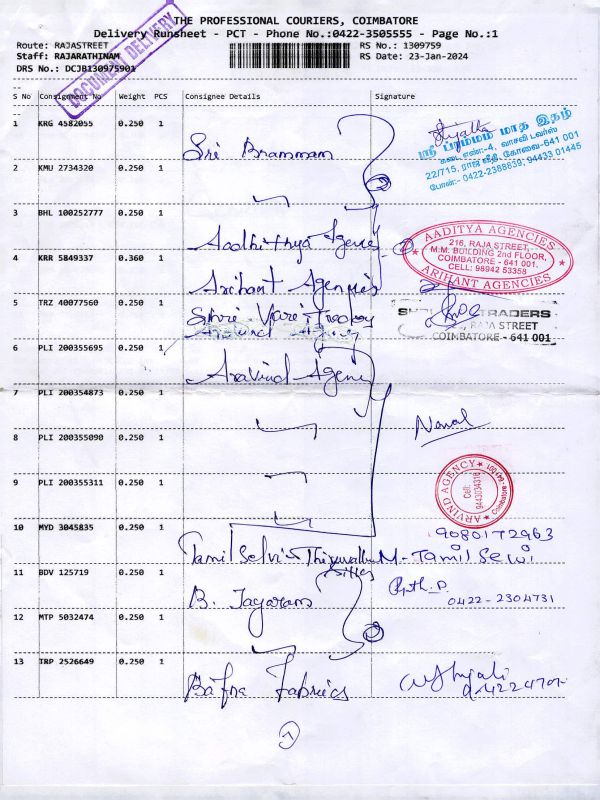 THE PROFESSIONAL COURIERS, COIMBATORE
Delivery Runsheet - PCT - Phone No.:0422-3505555 - Page No.:1
Route: RAJASTREET
RS No.: 1309759
Staff: RAJARATHINAM
RS Date: 23-Jan-2024
DRS No.: DCJB130975901
DOCUMENT DELIVERY
S No Consignment No Weight PCS Consignee Details Signature
1 KRG 4582055 0.250 1 Sri Brammam
ஸ்ரீ பிரம்மம் மாத இதழ்
கடை எண்:-4, வாசவி டவர்ஸ்
22/715, ராஜ வீதி, கோவை-641 001
போன்:- 0422-2388639, 94433 01445
2 KMU 2734320 0.250 1
3 BHL 100252777 0.250 1 Aadhithya Agencies
AADITYA AGENCIES
216, RAJA STREET,
M.M. BUILDING 2nd FLOOR,
COIMBATORE - 641 001.
CELL: 98942 53358
ARIHANT AGENCIES
4 KRR 5849337 0.360 1 Arihant Agencies
5 TRZ 40077560 0.250 1 Shree
TRADERS
RAJA STREET
COIMBATORE - 641 001
6 PLI 200355695 0.250 1 Aravind Agency
7 PLI 200354873 0.250 1
8 PLI 200355090 0.250 1
9 PLI 200355311 0.250 1
ARVIND AGENCY
Cell:
Coimbatore
10 MYD 3045835 0.250 1 Tamil Selvi
9080172963
M. Tamil Selvi
11 BDV 125719 0.250 1 B. Jayaram
0422-2304731
12 MTP 5032474 0.250 1
13 TRP 2526649 0.250 1 Bafna Fabrics